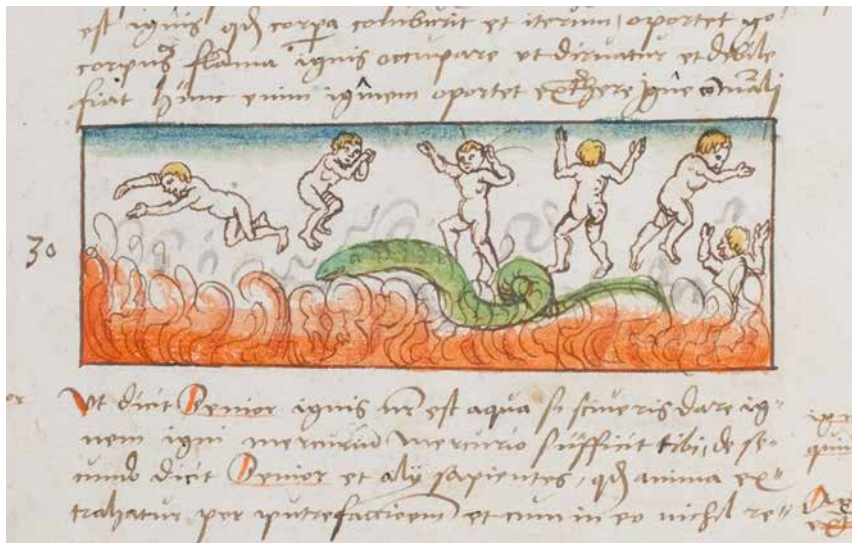 est ignis qd corpa comburit et iterum oportet go
corpus flama ignis occupare vt diruatur et debile
fiat hunc enim ignem oportet extrahere igne
30
Vt dicit Senior ignis nr est aqua si sciueris dare ig-
nem igni mercuriu mercurio sufficit tibi, de se-
cundo dicit Senior et alij sapientes, qd anima ex-
trahatur per putrefactioem et cum in eo nichil re-